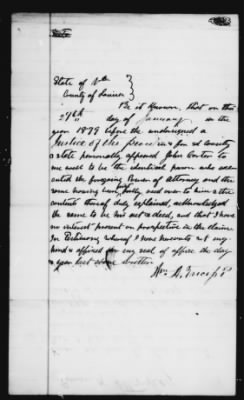 State of
County of
Be it Known, that on this
29th day of January in the
year 1879 before the undersigned a
Justice of the peace in & for sd County
& State personally appeared John
me well to be the identical person who exe-
cuted the foregoing Power of Attorney and the
same having been fully read over to him & the
contents thereof duly explained, acknowledged
the same to be his act & deed, and that I have
no interest present or prospective in the claim
In Testimony whereof I have hereunto set my
hand & affixed my seal of office the day
& year last above written
Wm